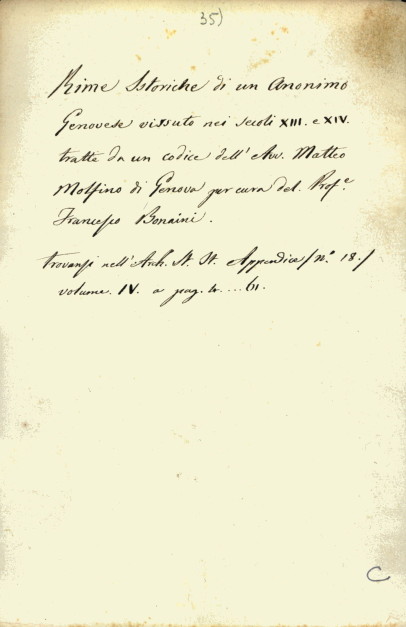 35)
Rime Istoriche di un Anonimo
Genovese vissuto nei secoli XIII. e XIV.
tratte da un codice dell' Avv. Matteo
Molfino di Genova per cura del. Prof.e
Francesco Bonaini.
trovansi nell' Arch. St. It. Appendice / n.° 18. /
volume. IV. a pag. .... 61.
C